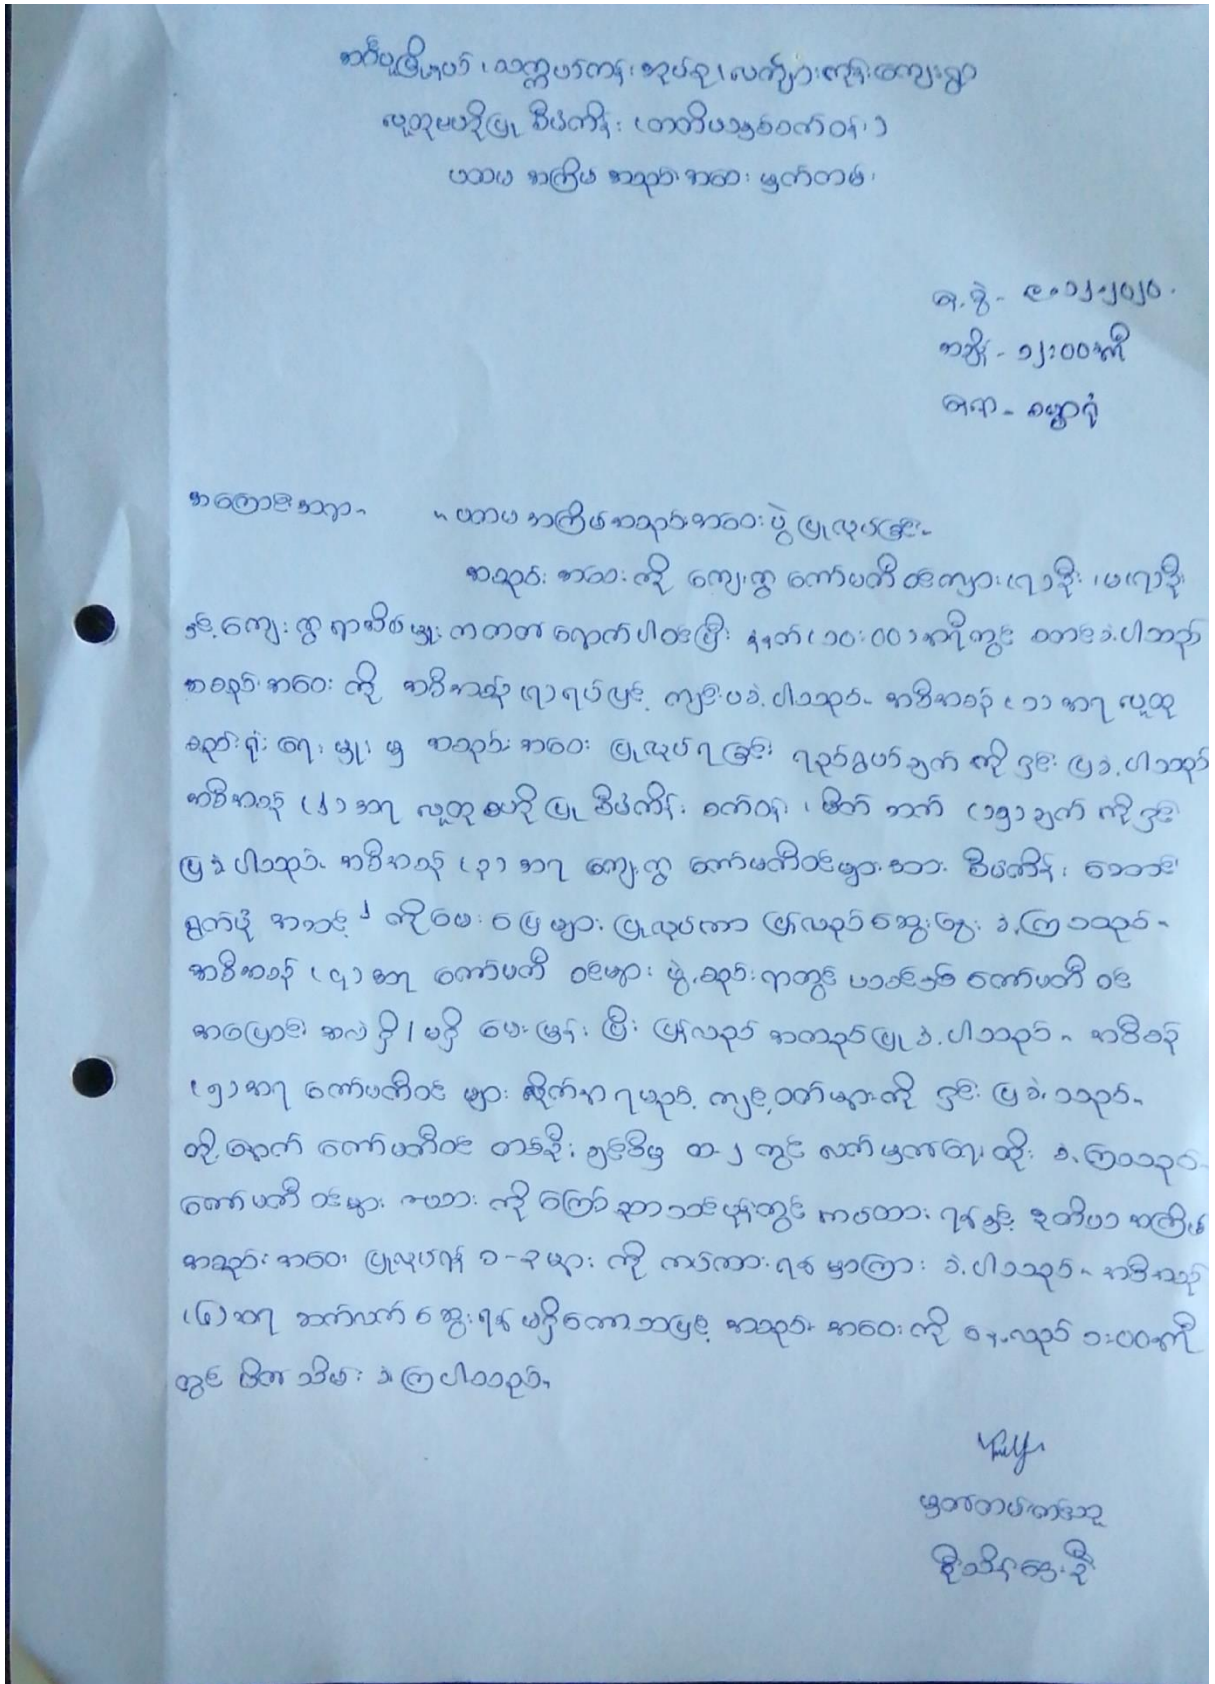 အင်္ဂပူမြို့နယ်၊ သက္ကယ်ကန်းအုပ်စု၊ လက်ျားကုန်းကျေးရွာ
လူထုဗဟိုပြု စီမံကိန်း (တတိယနှစ်စက်ဝန်း)
ပထမ အကြိမ် အစည်းအဝေး မှတ်တမ်း
ရက်စွဲ - ၉.၁၂.၂၀၂၀
အချိန် - ၁၂:၀၀ နာရီ
နေရာ - ဓမ္မာရုံ
အကြောင်းအရာ။ ။ ပထမ အကြိမ် အစည်းအဝေးပွဲ ပြုလုပ်ခြင်း။
အစည်းအဝေးကို ကျေးရွာ ကော်မတီဝင်ကျား (၇) ဦး ၊ မ (၇) ဦး
နှင့် ကျေးရွာ ရာအိမ်မှူး က တက်ရောက်ပါဝင်ပြီး နံနက် (၁၀:၀၀) နာရီတွင် စတင်ခဲ့ပါသည်
အစည်းအဝေးကို အစီအစဉ် (၇) ရပ်ဖြင့် ကျင်းပခဲ့ပါသည်။ အစီအစဉ် (၁) အရ လူထု
စည်းရုံးရေးမှူးမှ အစည်းအဝေး ပြုလုပ်ရခြင်း ရည်ရွယ်ချက်ကို ရှင်းပြခဲ့ပါသည်
အစီအစဉ် (၂) အရ လူထုဗဟိုပြု စီမံကိန်း စက်ဝန်း၊ မိတ်ဘက် (၁၅) ချက်ကို ရှင်း
ပြခဲ့ပါသည်။ အစီအစဉ် (၃) အရ ကျေးရွာ ကော်မတီဝင်များအား စီမံကိန်း ဆောင်
ရွက်ပုံ အဆင့် ကိုမေးမြေများ ပြုလုပ်ကာ ပြန်လည်ဆွေးနွေးခဲ့ကြသည်။
အစီအစဉ် (၄) အရ ကော်မတီဝင်များ ဖွဲ့စည်းရာတွင် ယခင်နှစ် ကော်မတီဝင်
အပြောင်းအလဲ ရှိ/မရှိ မေးမြန်းပြီး ပြန်လည် အတည်ပြုခဲ့ပါသည်။ အစီစဉ်
(၅) အရ ကော်မတီဝင်များ လိုက်နာရမည့် ကျင့်ဝတ်များကို ရှင်းပြခဲ့သည်။
တို့နောက် ကော်မတီဝင် တစ်ဦးချင်းစီမှ ထ-၂ တွင် လက်မှတ်ရေးထိုးခဲ့ကြသည်။
ကော်မတီဝင်များ ကို ကြော်ညာသင်ပုန်းတွင် ကပ်ထားရန်နှင့် ဒုတိယအကြိမ်
အစည်းအဝေး ပြုလုပ်ရန် ၁-၃ များကို ကပ်ထားရန် မှာကြားခဲ့ပါသည်။ အစီအစဉ်
(၆) အရ ဆက်လက်ဆွေးရန် မရှိတော့သဖြင့် အစည်းအဝေးကို နေ့လည် ၁:၀၀ နာရီ
တွင် ပိတ်သိမ်းခဲ့ကြပါသည်။
မှတ်တမ်းတင်သူ